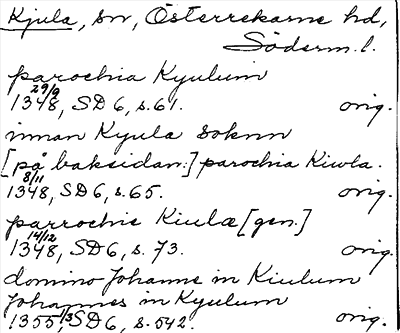 Kjula, sn, Österrekarne hd,
Söderm. l.
parochia Kyulum
29/9
1348, SD 6, s. 61. orig.
innan Kyula soknn
[på baksidan:] parochia Kiwla.
8/11
1348, SD 6, s. 65. orig.
parrochie Kiulæ [gen.]
14/12
1348, SD 6, s. 73. orig.
domino Johanne in Kiulum
Johannes in Kyulum
1355 1/3 SD 6, s. 542. orig.